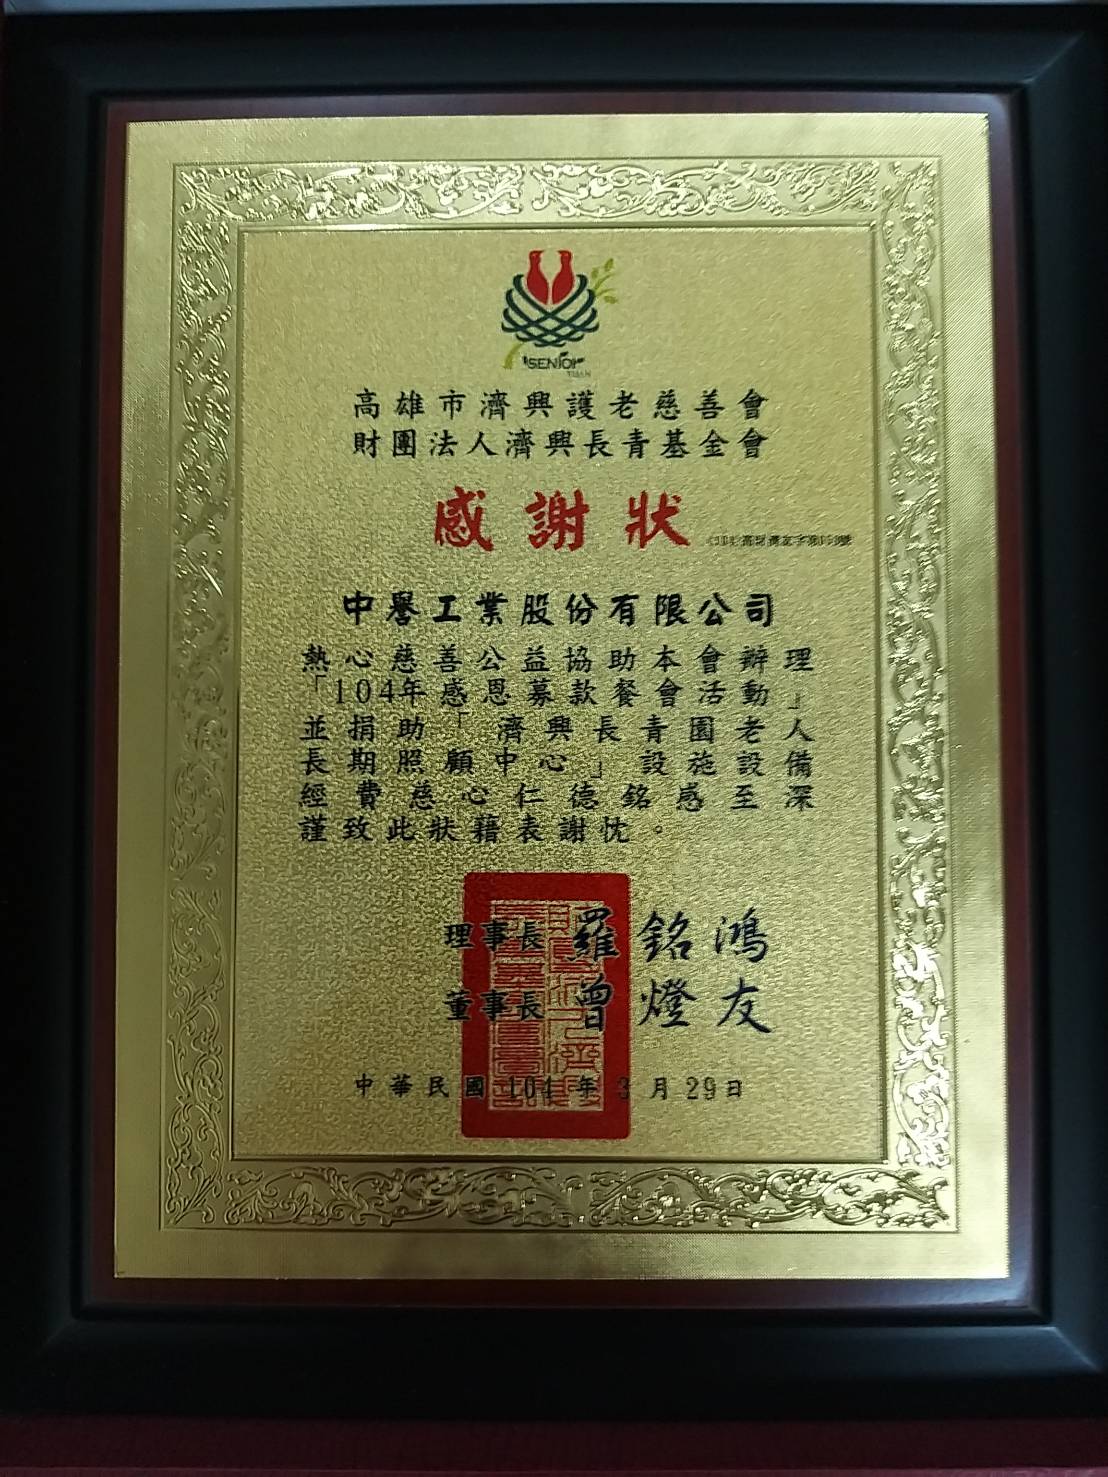 SENIOR
高雄市濟興護老慈善會
財團法人濟興長青基金會
感謝狀
中譽工業股份有限公司
熱心慈善公益協助本會辦理
「104年感恩募款餐會活動」
並捐助「濟興長青園老人
長期照顧中心」設施設備
經費慈心仁德銘感至深
謹致此狀藉表謝忱。
理事長 羅銘鴻
董事長 曾燈友
中華民國104年3月29日